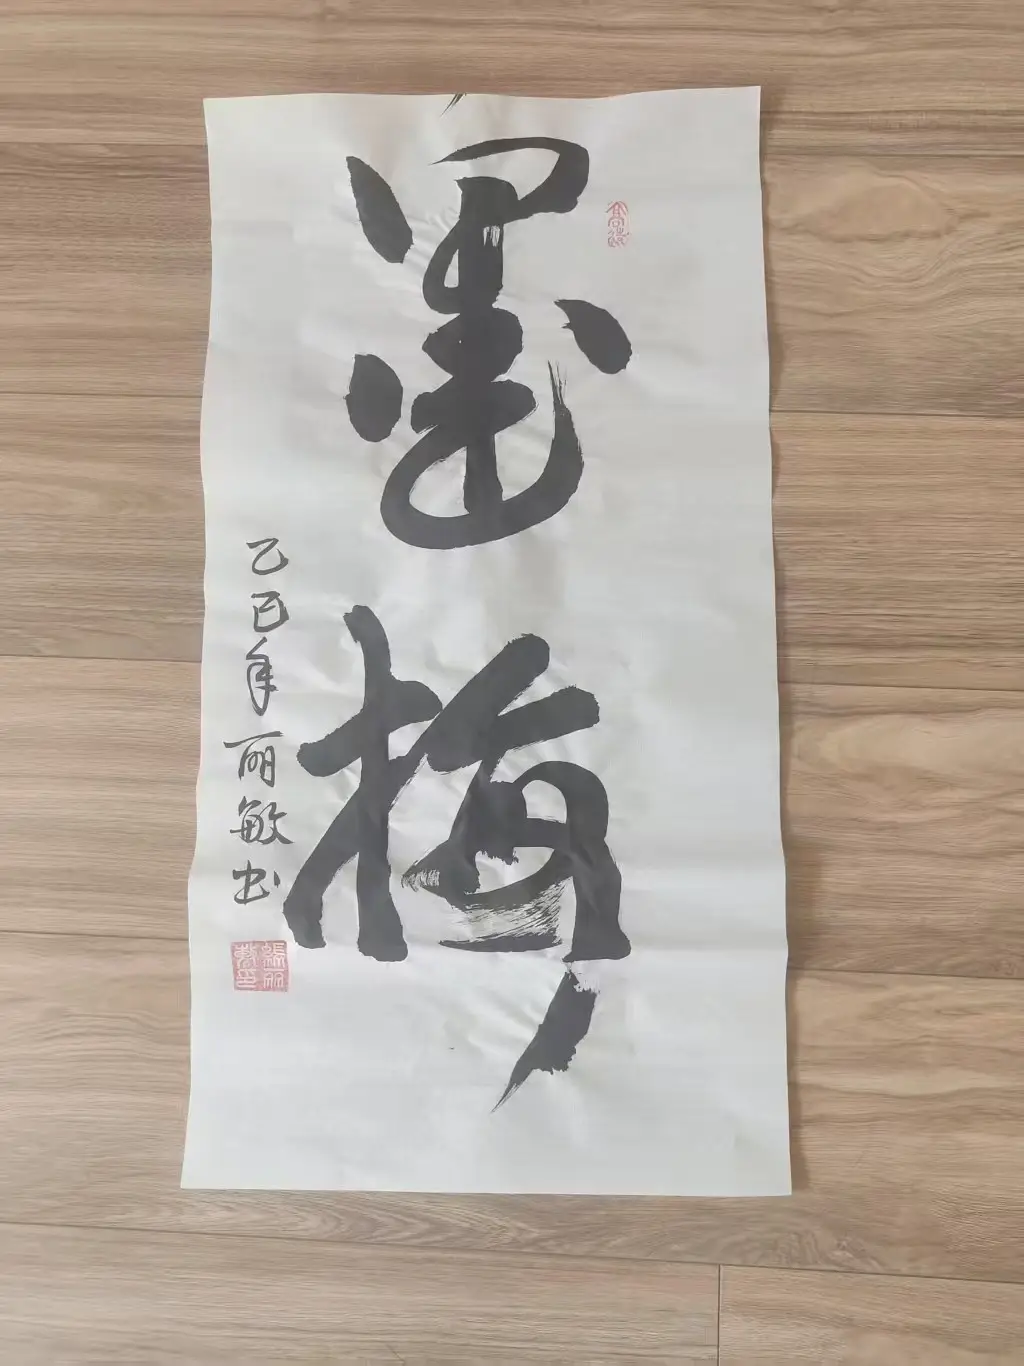 墨梅
乙巳年丽敏书
張丽敏印